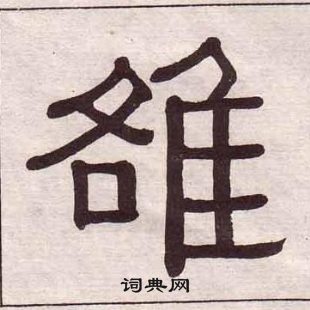 雒
词典网